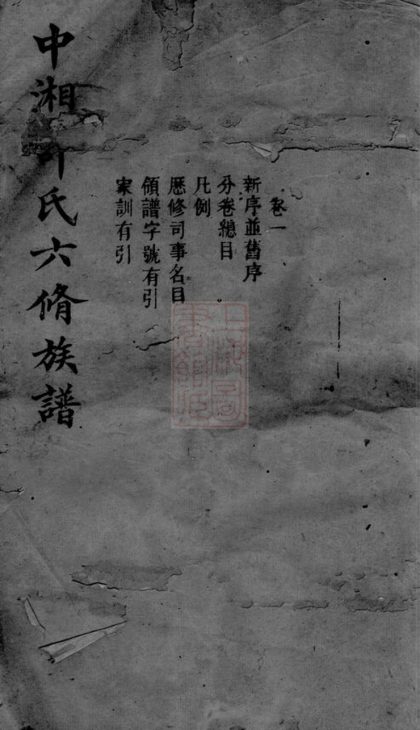 卷一
新序並舊序
分卷總目
凡例
歷修司事名目
領譜字號有引
家訓有引
中湘 氏六脩族譜